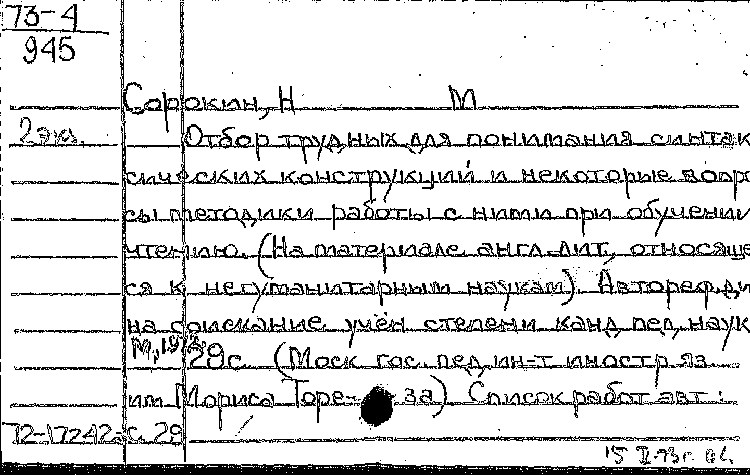 73-4
945
Сорокин, Н М
2 экз.
Отбор трудных для понимания синтак
сических конструкций и некоторые вопро
сы методики работы с ними при обучении
чтению. (На материале англ. лит, относяще
ся к негуманитарным наукам). Автореф. ди
на соискание учен степени канд пед. наук
М, 1972
29с. (Моск гос. пед. ин-т иностр яз
им Мориса Торе- за). Список работ авт:
72-17242 с. 29
15 II 73 г.